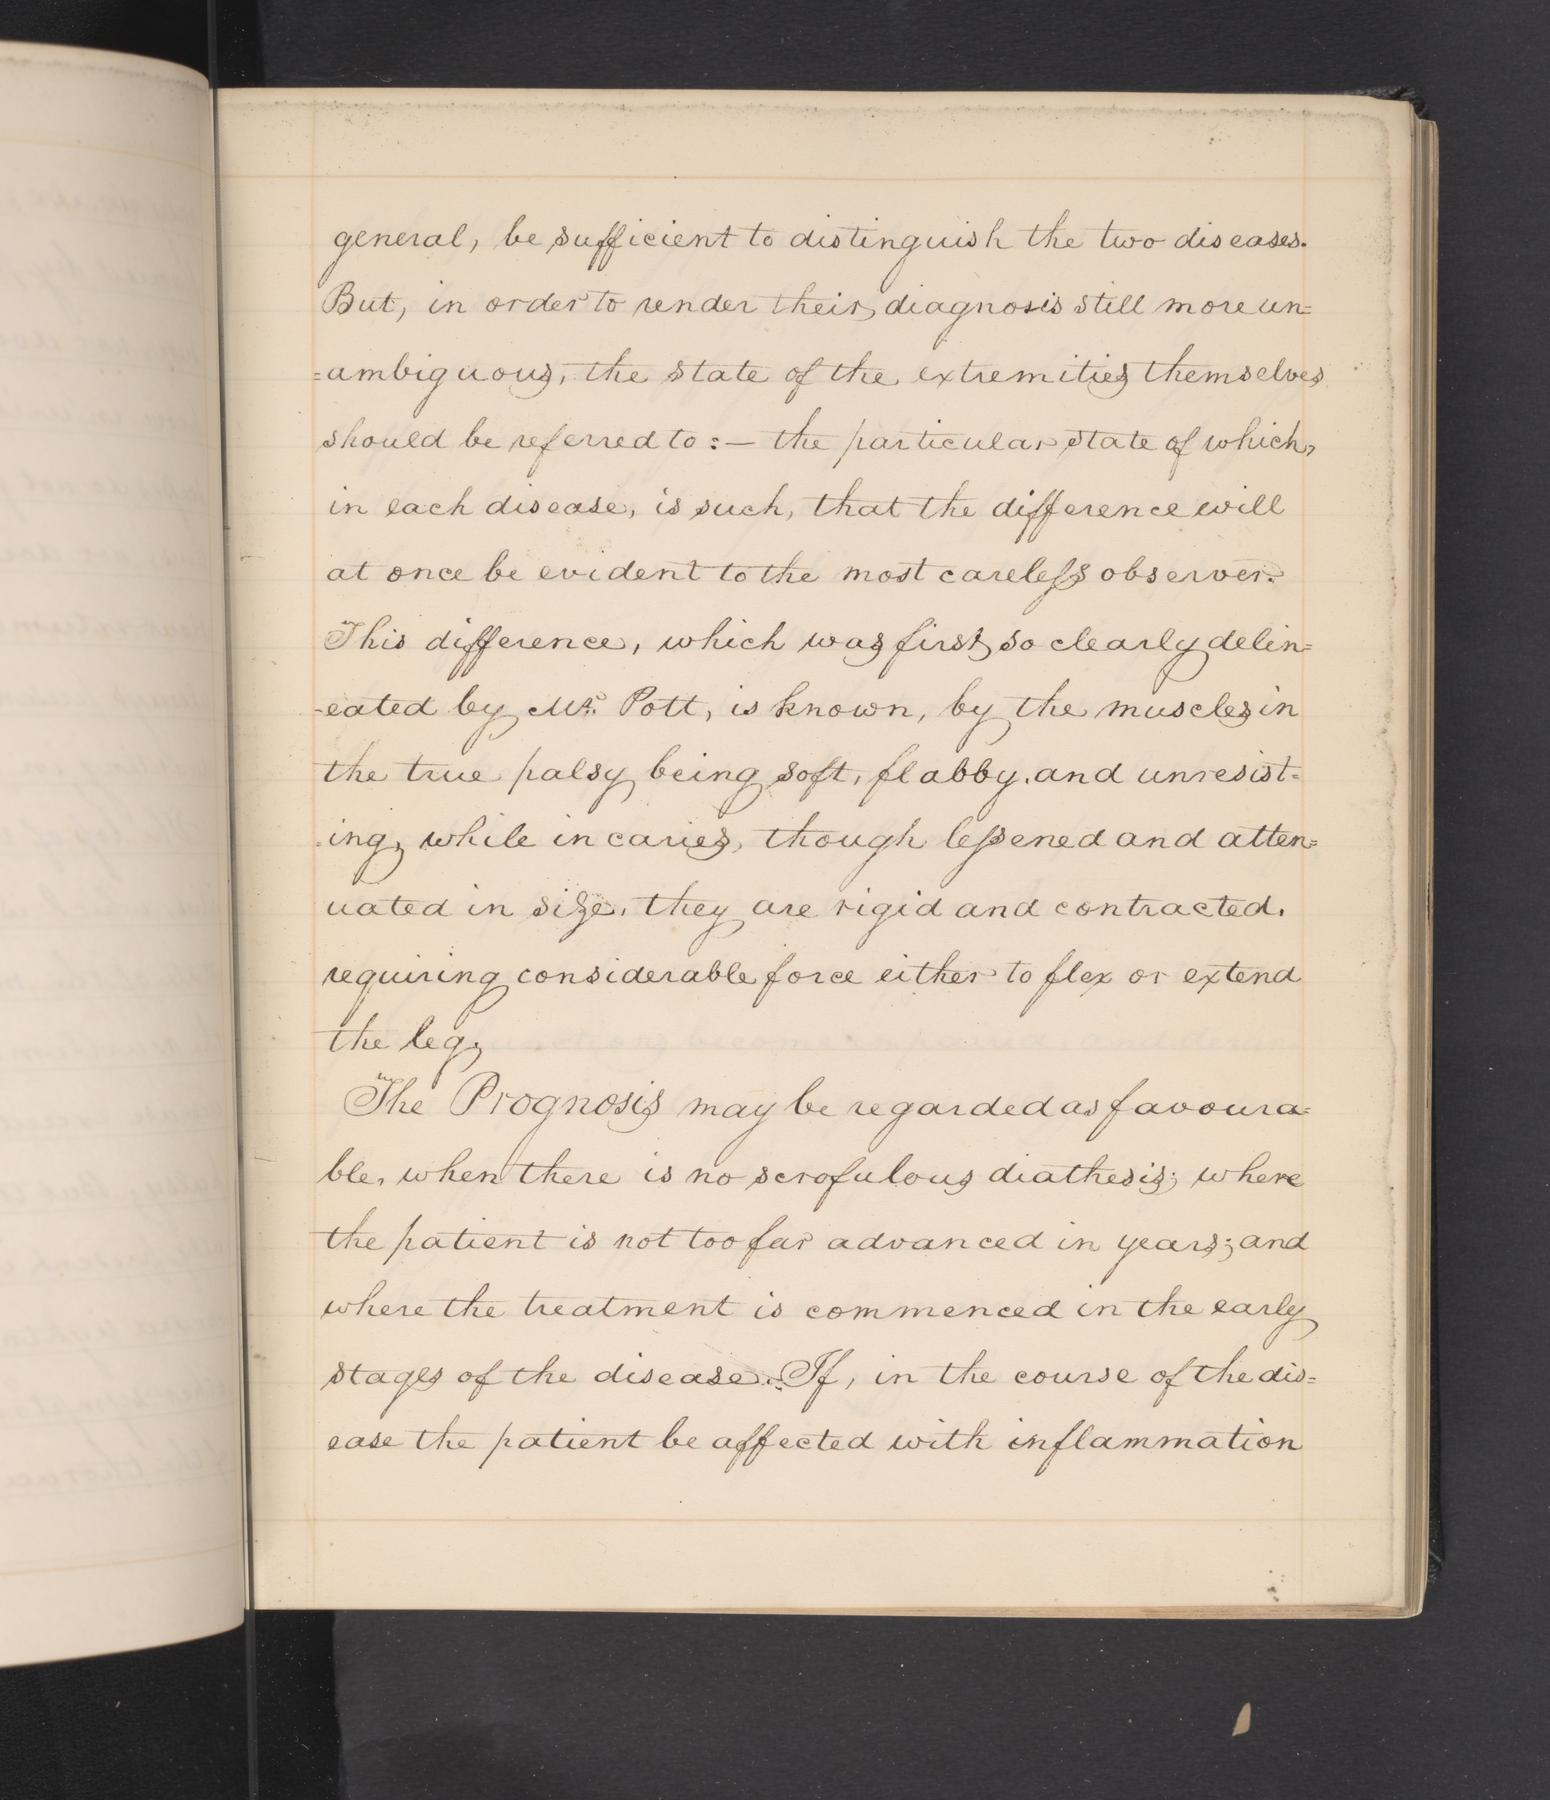 general, be sufficient to distinguish the two diseases.
But, in order to render their diagnosis still more un=
=ambiguous, the state of the extremities themselves
should be referred to :— the particular state of which,
in each disease, is such, that the difference will
at once be evident to the most careleſs observer.
This difference, which was first so clearly delin=
-eated by Mr. Pott, is known, by the muscles in
the true palsy being soft, flabby, and unresist-
-ing, while in caries, though leſsened and atten=
uated in size, they are rigid and contracted,
requiring considerable force either to flex or extend
the leg,
The Prognosis may be regarded as favoura=
ble, when there is no scrofulous diathesis; where
the patient is not too far advanced in years; and
where the treatment is commenced in the early
stages of the disease. If, in the course of the dis=
ease the patient be affected with inflammation